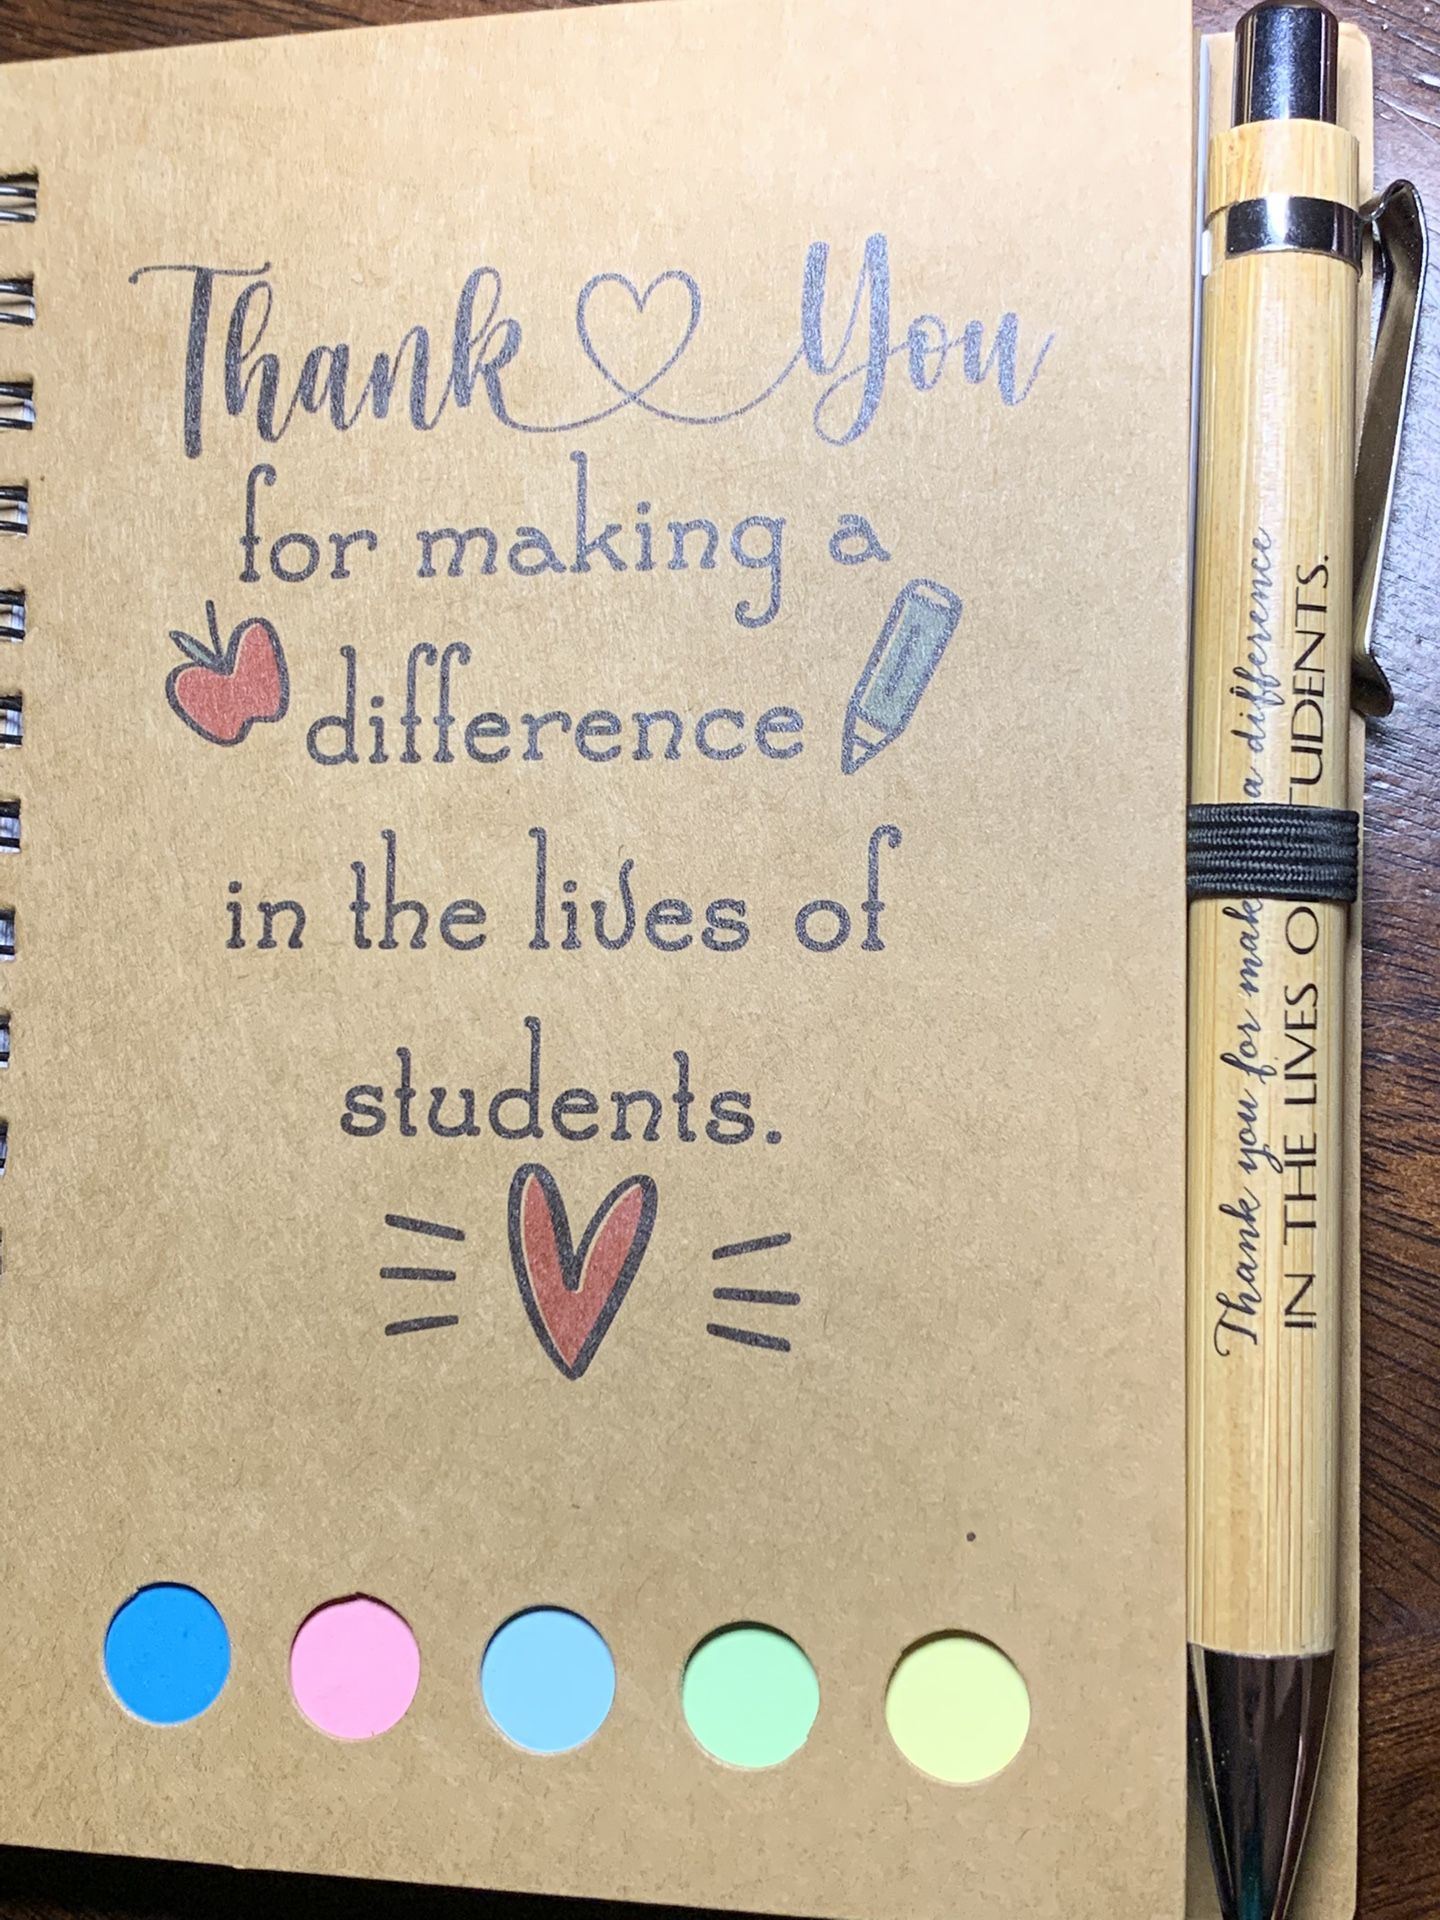 Thank You
for making a
difference
in the lives of
students.
Thank you for mak a difference
IN THE LIVES O TUDENTS.